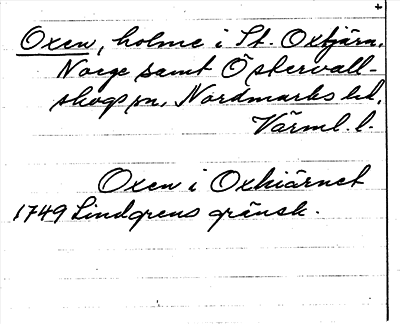 Oxen, holme i St. Oxtjärn,
Norge samt Östervall-
skogs sn, Nordmarks hd,
Värml. l.
Oxen i Oxkiärnet
1749 Lindgrens gränsk.